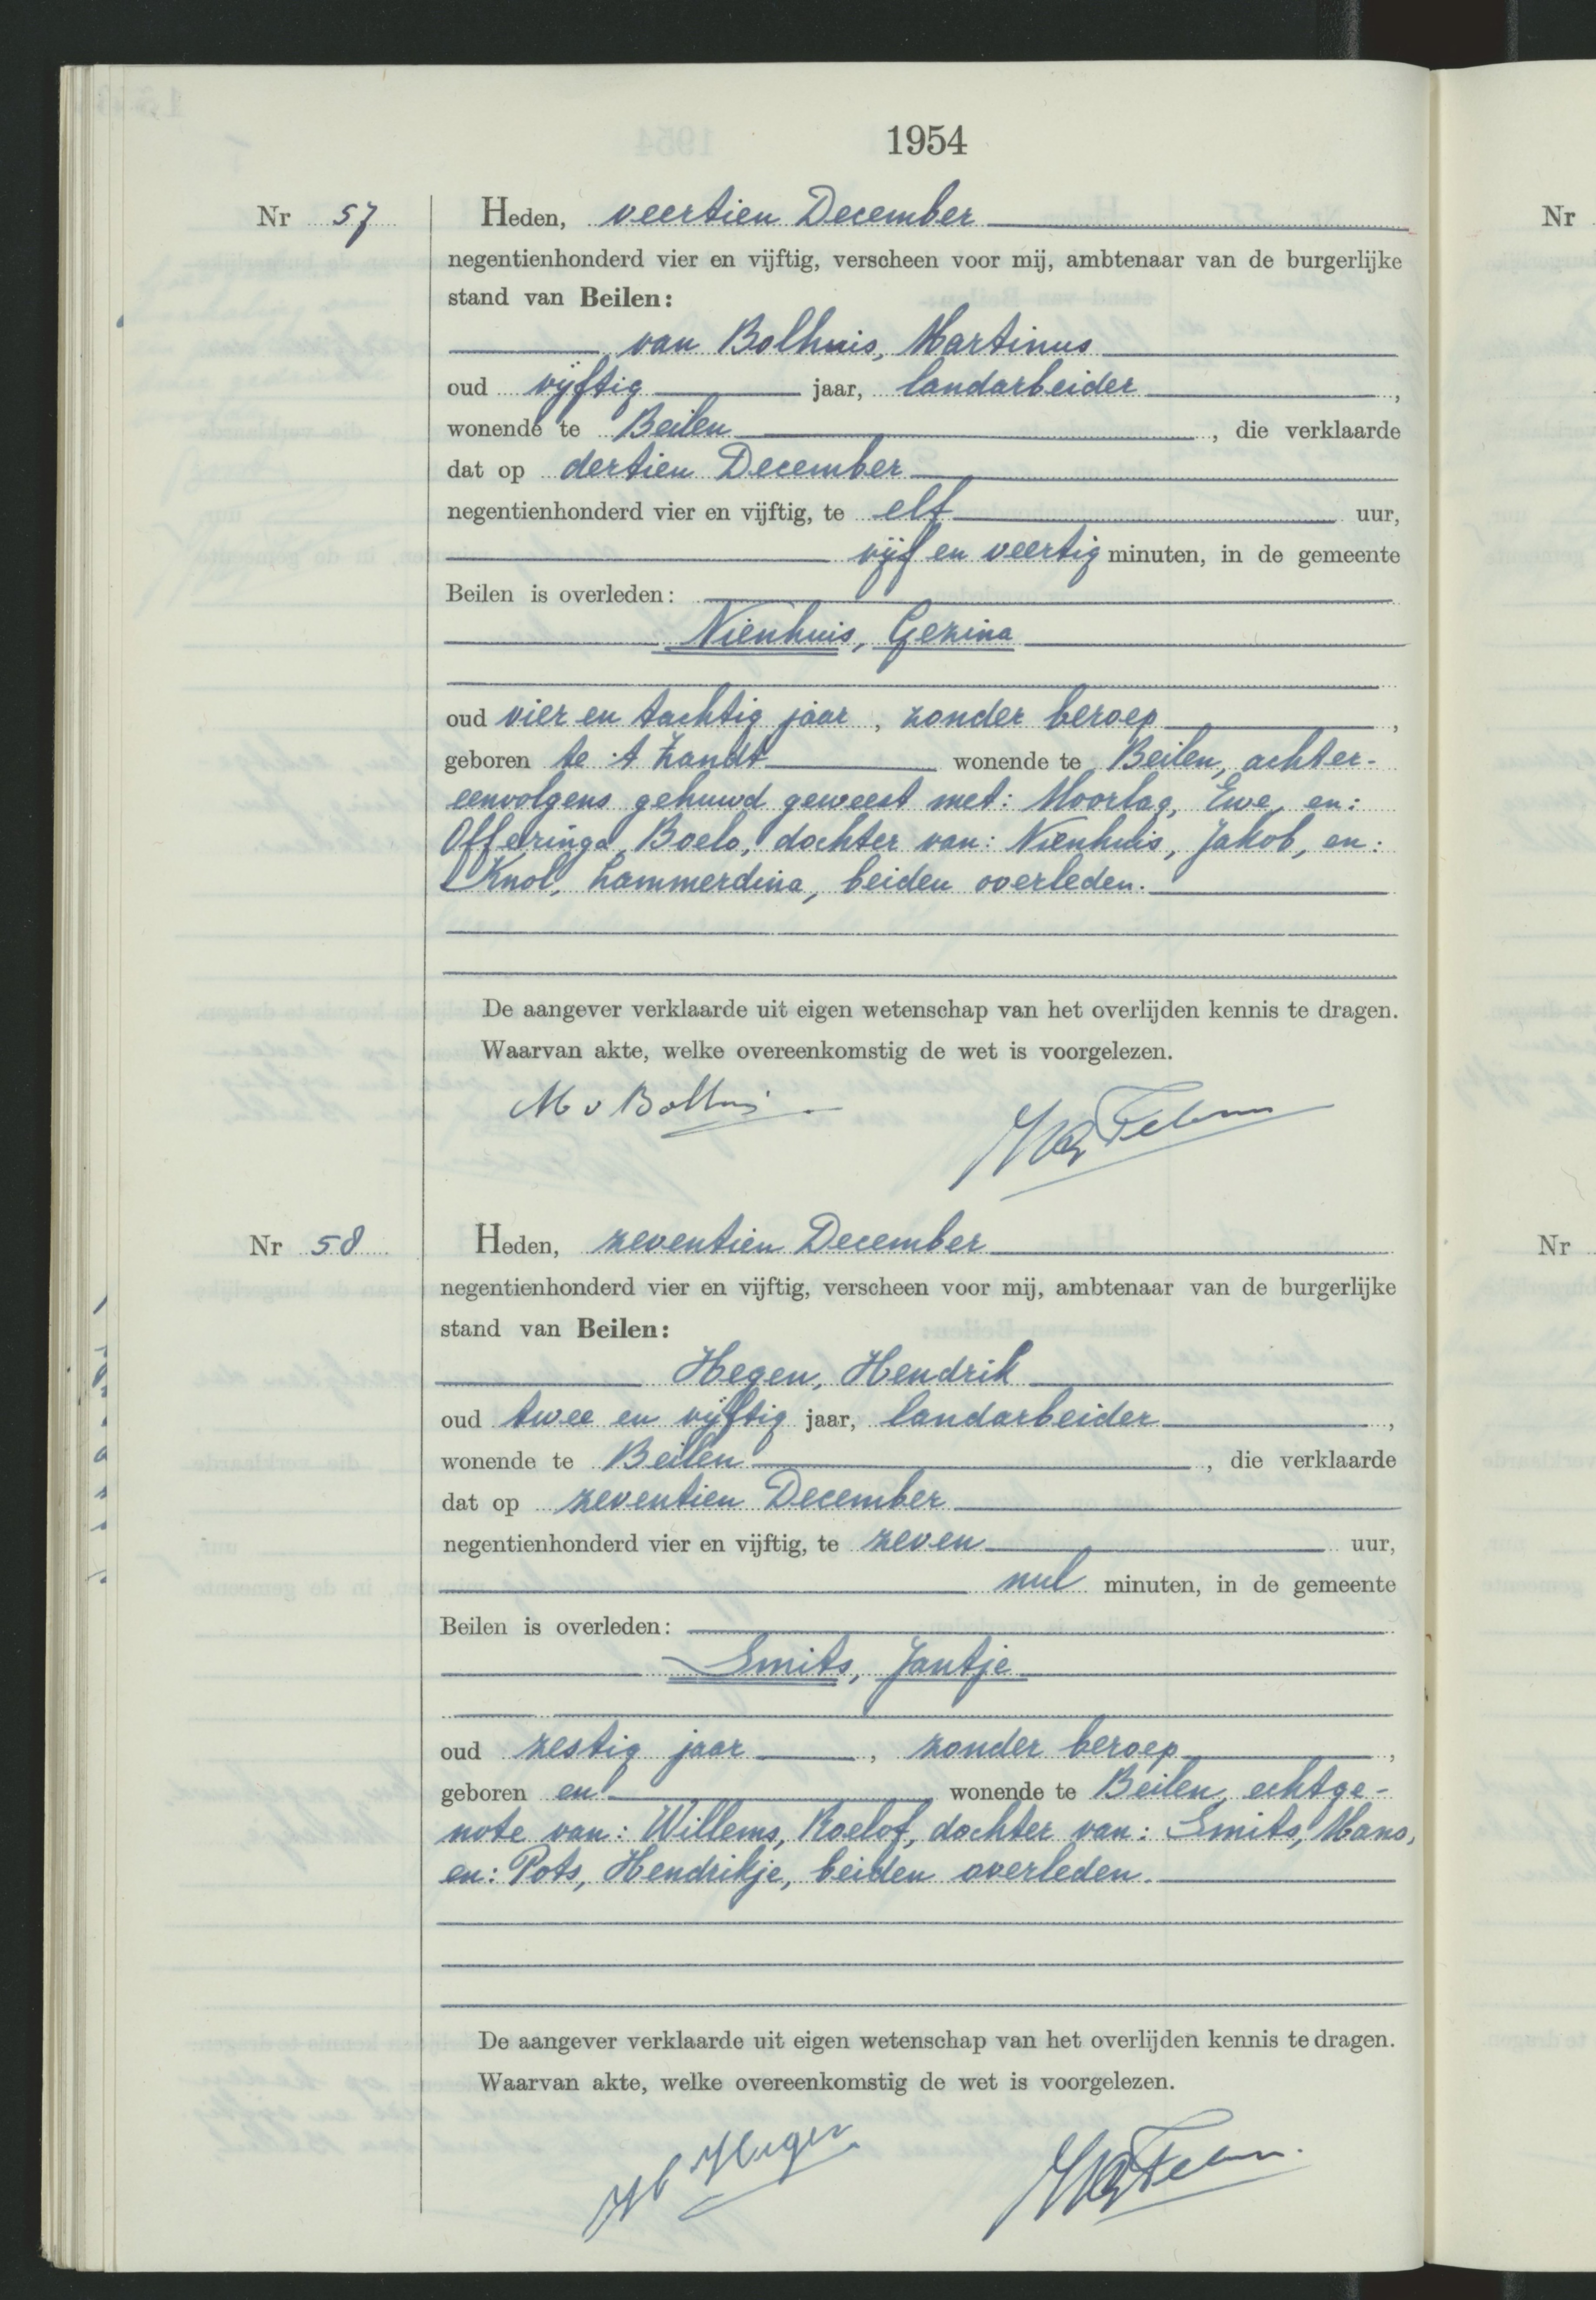 1954
Nr 57
Heden, veertien December
negentienhonderd vier en vijftig, verscheen voor mij, ambtenaar van de burgerlijke
stand van Beilen:
van Bolhuis, Martinus
oud vijftig jaar, landarbeider,
wonende te Beilen, die verklaarde
dat op dertien December
negentienhonderd vier en vijftig, te elf uur,
vijf en veertig minuten, in de gemeente
Beilen is overleden:
Nienhuis, Gezina
oud vier en tachtig jaar, zonder beroep,
geboren te 't Zandt wonende te Beilen, achter-
eenvolgens gehuwd geweest met: Moorlag, Ewe, en:
Offeringa, Boelo, dochter van: Nienhuis, Jakob, en:
Knol, Lammerdina, beiden overleden.
De aangever verklaarde uit eigen wetenschap van het overlijden kennis te dragen.
Waarvan akte, welke overeenkomstig de wet is voorgelezen.
M v Bolhuis
Nr 58
Heden, zeventien December
negentienhonderd vier en vijftig, verscheen voor mij, ambtenaar van de burgerlijke
stand van Beilen:
Hegen, Hendrik
oud twee en vijftig jaar, landarbeider,
wonende te Beilen, die verklaarde
dat op zeventien December
negentienhonderd vier en vijftig, te zeven uur,
nul minuten, in de gemeente
Beilen is overleden:
Smits, Jantje
oud zestig jaar, zonder beroep,
geboren en wonende te Beilen, echtge-
note van: Willems, Roelof, dochter van: Smits, Mans,
en: Pots, Hendrikje, beiden overleden.
De aangever verklaarde uit eigen wetenschap van het overlijden kennis te dragen.
Waarvan akte, welke overeenkomstig de wet is voorgelezen.
H Hegen
Nr
Nr